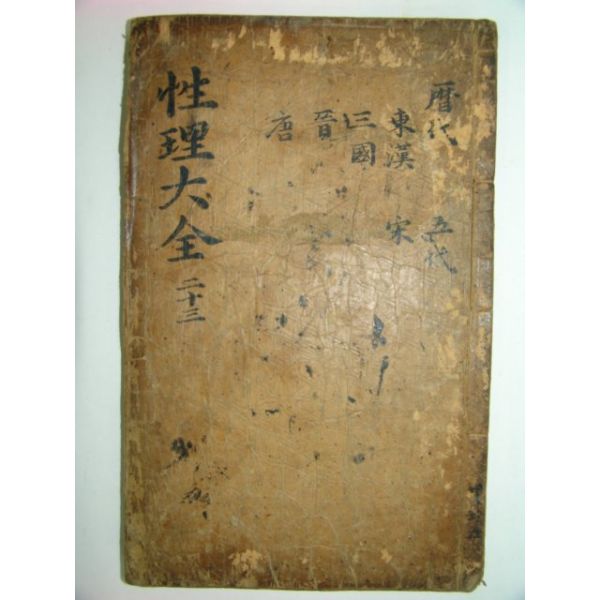 性理大全 二十三
曆代 五代
東漢 宋
三國
晉
唐